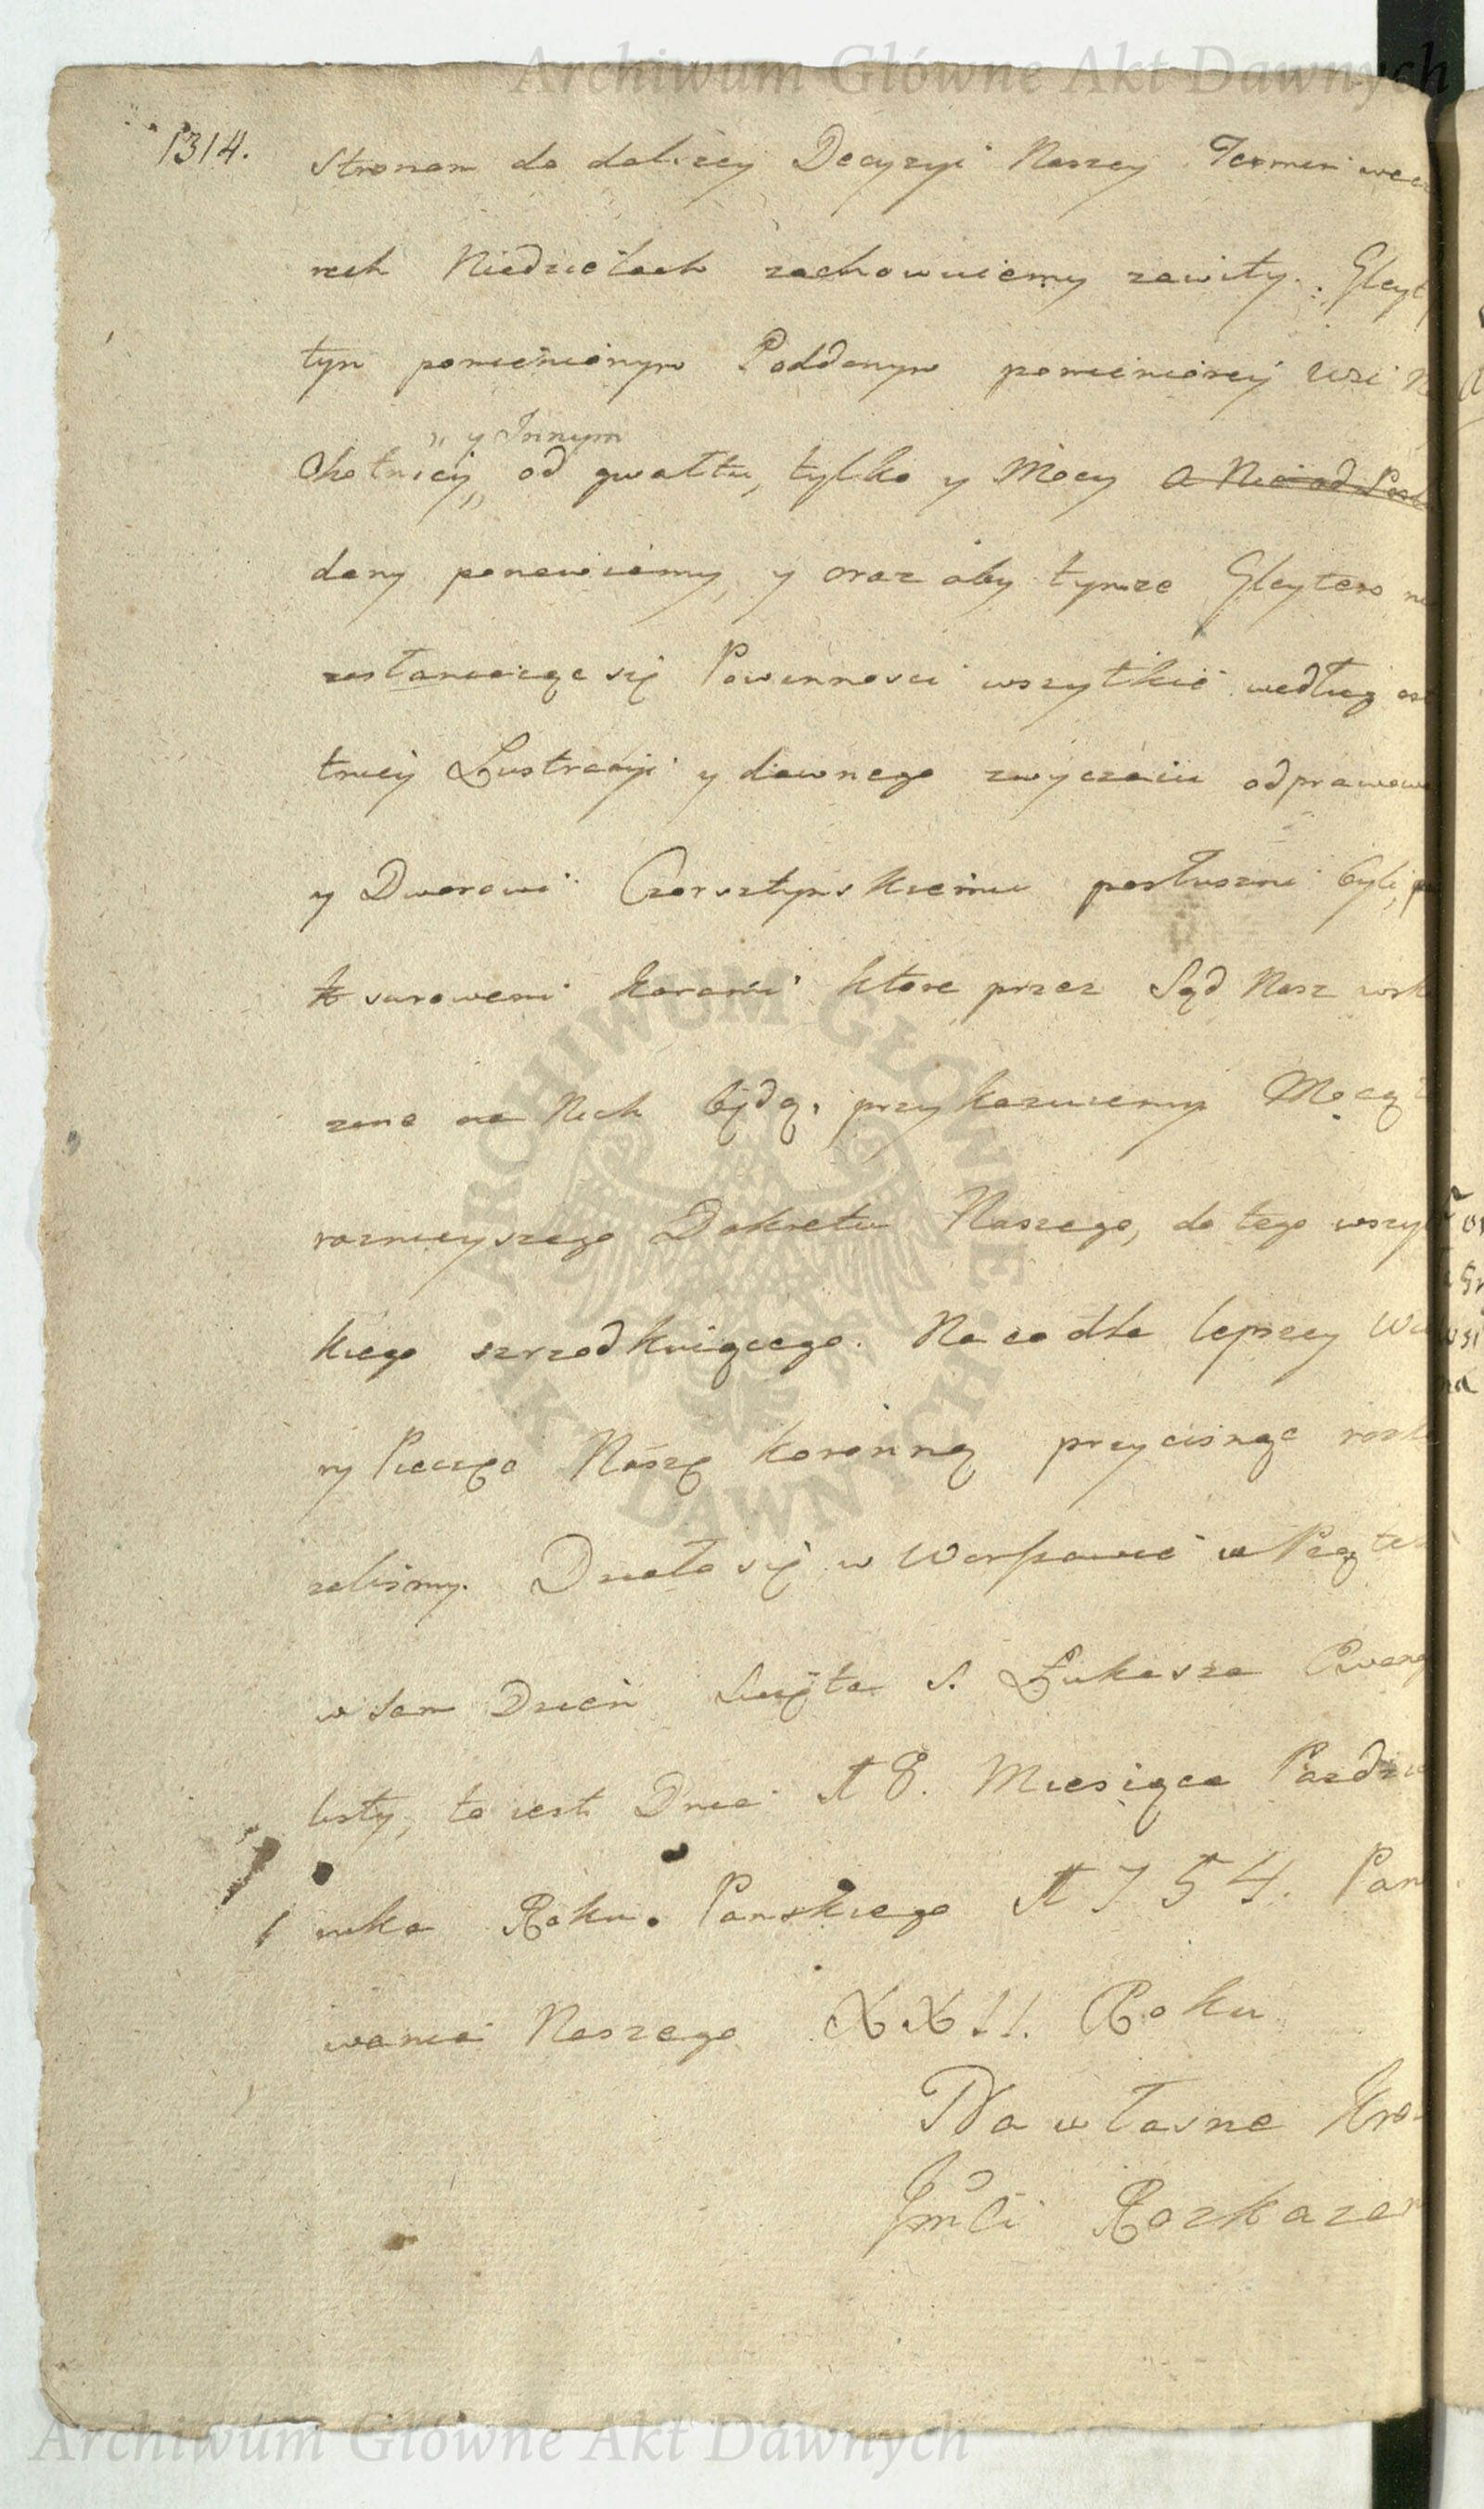 Archiwum Główne Akt Dawnych
1314.
Stronom do dalszey Decyzyi Naszey Termin
rech Niedzielach zachowuiemy zawity. Gleyt
tym pomienionym Poddanym pomienioney Wsi
„ y Innym
Chotnicy„ od gwałtu, tylko y Mocy a Nie od
dany ponawiamy, y oraz aby tymze Gleytem
zasłaniaiąc się Powinnosci wszytkie według
tniey Lustracyi y dawnego zwyczaiu odprawowa
y Dworowi Czorsztynskiemu posłuszni byli,
surowemi karami ktore przez Sąd Nasz wska
zane na Nich będą, przykazuiemy Mocą
raznieyszego Dekretu Naszego, do tego wszyt
kiego szrzodkuiącego. Na co dla lepszey Wia
ry Pieczęc Naszę koronną przycisnąc rozka
zalismy. Działo się w Warszawie w Piątek
w sam Dzien Swięta S. Łukasza Ewang
listy, to iest Dnia 18. Miesiąca Pazdzie
rnika Roku Panskiego 1754. Pano
wania Naszego XXII. Roku
Na własne Kro
Jmci Rozkazan
ARCHIWUM GŁÓWNE AKT DAWNYCH
Archiwum Główne Akt Dawnych